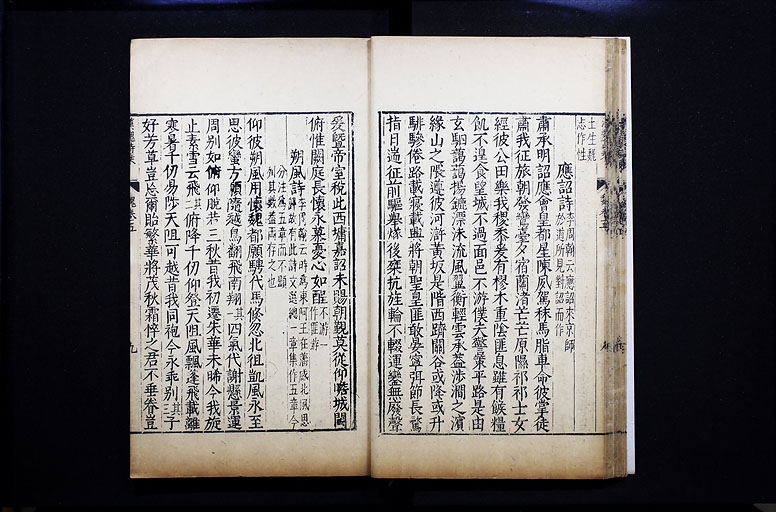 士生魏
志作性
應詔詩
李周翰云應詔來京師
於道所見對詔而作
肅承明詔應會皇都星陳夙駕秣馬脂車命彼掌徒
肅我征旅朝發鸞臺夕宿蘭渚芒芒原隰祁祁士女
經彼公田樂我稷黍爰有樛木重陰匪息雖有餱糧
飢不遑食望城不過面邑不游僕夫警策平路是由
玄駟藹藹揚鑣漂沫流風翼衡輕雲承蓋涉澗之濱
緣山之隈遵彼河滸黃坂是階西躋關谷或降或升
騑驂倦路載寢載興將朝聖皇匪敢晏寧弭節長騖
指日遄征前驅舉燧後乘抗旌輪不輟運鑾無廢聲
爰暨帝室稅此西墉嘉詔未賜朝覲莫從仰瞻城閾
俯惟闕庭長懷永慕憂心如酲
不游一
作匪游
朔風詩
李周翰云時爲東阿王在藩感北風思
歸故有此詩文選總一章集作五章今
分注爲五章而不顯
列其數蓋兩存之也
仰彼朔風用懷魏都願騁代馬倐忽北徂凱風永至
思彼蠻方願隨越鳥翻飛南翔
其一
四氣代謝懸景運
周別如俯仰脫若三秋昔我初遷朱華未晞今我旋
止素雪云飛
其二
俯降千仞仰登天阻風飄蓬飛載離
寒暑千仞易陟天阻可越昔我同袍今永乖別
其三
子
好芳草豈忘爾貽繁華將茂秋霜悴之君不垂眷豈
九